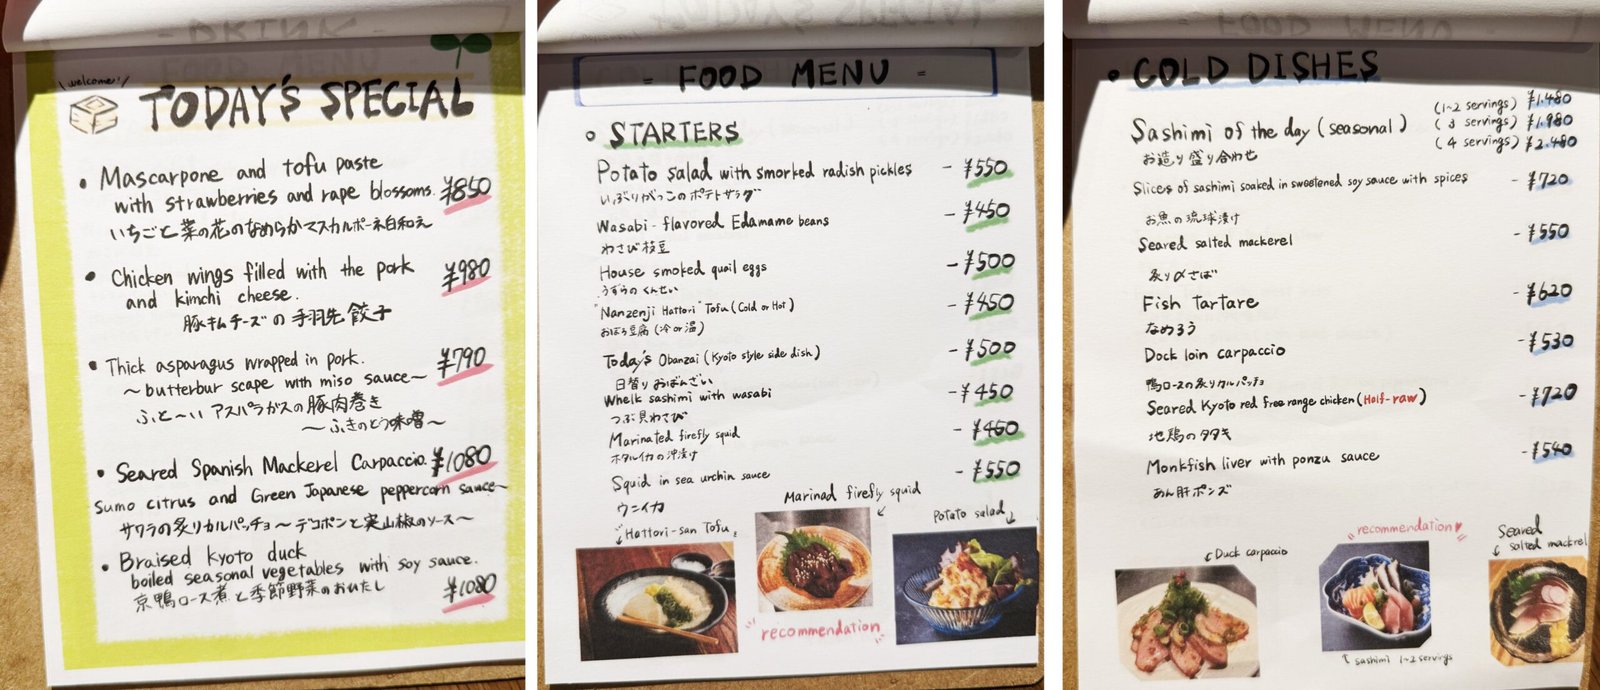 \ welcome! /
TODAY'S SPECIAL
• Mascarpone and tofu paste
with strawberries and rape blossoms. ¥850
いちごと菜の花のなめらかマスカルポーネ白和え
• Chicken wings filled with the pork
and kimchi cheese. ¥980
豚キムチーズの手羽先餃子
• Thick asparagus wrapped in pork. ¥790
～butterbur scape with miso sauce～
ふと～いアスパラガスの豚肉巻き
～ふきのとう味噌～
• Seared Spanish Mackerel Carpaccio. ¥1080
Sumo citrus and Green Japanese peppercorn sauce~
サワラの炙りカルパッチョ～デコポンと実山椒のソース～
• Braised Kyoto duck
boiled seasonal vegetables with soy sauce.
京鴨ロース煮と季節野菜のおひたし ¥1080
- FOOD MENU -
• STARTERS
Potato salad with smorked radish pickles - ¥550
いぶりがっこのポテトサラダ
Wasabi-flavored Edamame beans - ¥450
わさび枝豆
House smoked quail eggs - ¥500
うずらのくんせい
"Nanzenji Hattori" Tofu (Cold or Hot) - ¥450
おぼろ豆腐(冷or温)
Today's Obanzai (Kyoto style side dish) - ¥500
日替りおばんざい
Whelk sashimi with wasabi - ¥450
つぶ貝わさび
Marinated firefly squid - ¥450
ホタルイカの沖漬け
Squid in sea urchin sauce - ¥550
ウニイカ
Hattori-san Tofu
Marinad firefly squid
Potato salad
"recommendation"
• COLD DISHES
Sashimi of the day (seasonal) (1~2 servings) ¥1.480
(3 servings) ¥1.980
(4 servings) ¥2.480
お造り盛り合わせ
Slices of sashimi soaked in sweetened soy sauce with spices - ¥720
お魚の琉球漬け
Seared salted mackerel - ¥550
炙り〆さば
Fish tartare - ¥620
なめろう
Dock loin carpaccio - ¥530
鴨ロースの炙りカルパッチョ
Seared Kyoto red free range chicken (Half-raw) - ¥720
地鶏のタタキ
Monkfish liver with ponzu sauce - ¥540
あん肝ポンズ
Duck carpaccio
"recommendation♥
sashimi 1~2 servings
Seared
salted mackrel